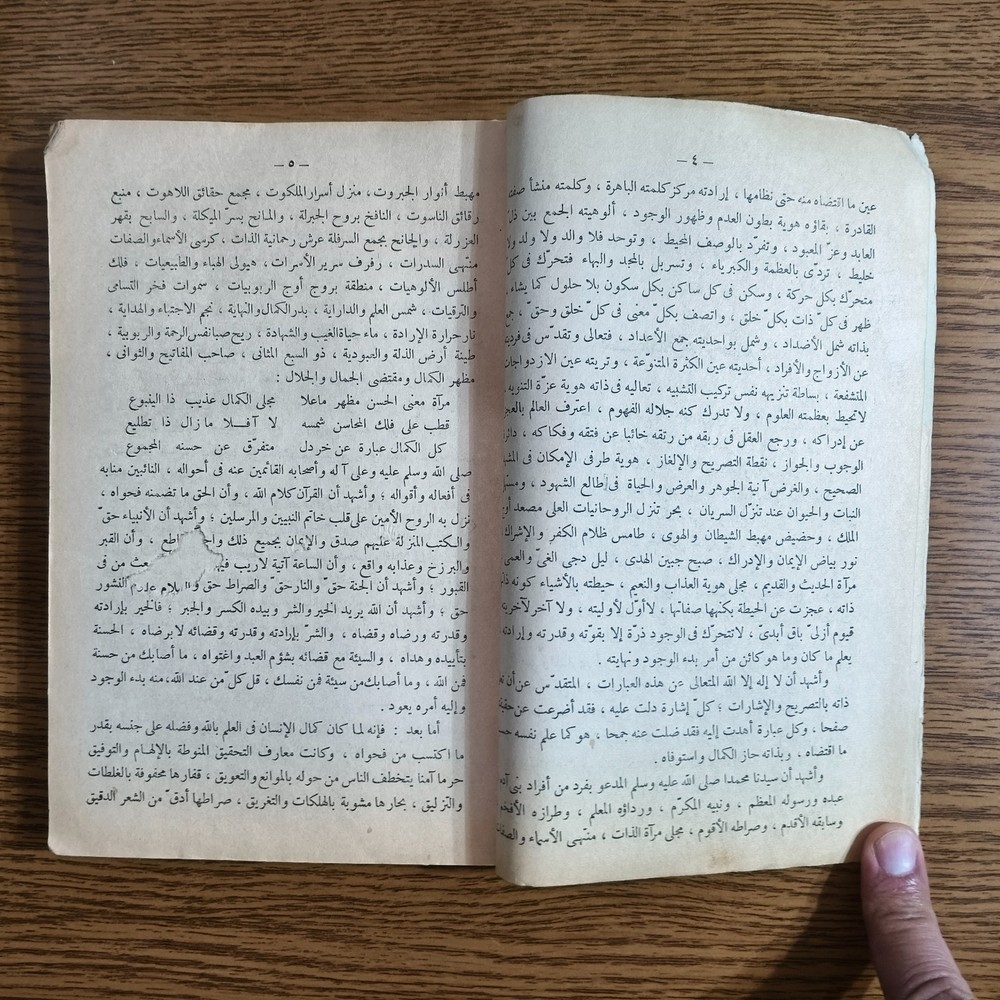 — ٤ —
عين ما اقتضاه منه حتى نظامها ، إرادته مركز كلمته الباهرة ، وكلمته منشأ
القادرة ، بقاؤه هوية بطون العدم وظهور الوجود ، ألوهيته الجمع بين
العابد وعزّ المعبود ، وتفرّد بالوصف المحيط ، وتوحد فلا والد ولا ولد ولا
خليط ، تردّى بالعظمة والكبرياء ، وتسربل بالمجد والبهاء فتحرّك فى كلّ
متحرّك بكل حركة ، وسكن فى كل ساكن بكل سكون بلا حلول كما يشاء
ظهر فى كلّ ذات بكلّ خلق ، واتصف بكلّ معنى فى كلّ خلق وحقّ ،
بذاته شمل الأضداد ، وشمل بواحديته جمع الأعداد ، فتعالى وتقدّس فى
عن الأزواج والأفراد ، أحديته عين الكثرة المتنوّعة ، وتريته عين الازدواجات
المتشفعة ، بساطة تنزيهه نفس تركيب التشبيه ، تعاليه فى ذاته هوية عزّة التنزيه
لاتحيط بعظمته العلوم ، ولا تدرك كنه جلاله الفهوم ، اعترف العالم
عن إدراكه ، ورجع العقل فى ربقه من رتقه خائبا عن فتقه وفكاكه ،
الوجوب والجواز ، نقطة التصريح والإلغاز ، هوية طرفى الإمكان فى
الصحيح ، والغرض آنية الجوهر والعرض والحياة فى طالع الشهود ،
النبات والحيوان عند تنزّل السريان ، بحر تنزل الروحانيات العلى مصعد
الملك ، وحضيض مهبط الشيطان والهوى ، طامس ظلام الكفر والإشراك
نور بياض الإيمان والإدراك ، صبح جبين الهدى ، ليل دجى الغىّ والعمى
مرآة الحديث والقديم ، مجلى هوية العذاب والنعيم ، حيطته بالأشياء كونه
ذاته ، عجزت عن الحيطة بكنهها صفاتها ، لا أوّل لأوليته ، ولا آخر لآخريته
قيوم أزلىّ باق أبدىّ ، لاتتحرك فى الوجود ذرّة إلا بقوّته وقدرته وإرادته
يعلم ما كان وما هو كائن من أمر بدء الوجود ونهايته .
وأشهد أن لا إله إلا الله المتعالى عن هذه العبارات ، المتقدّس عن أن
ذاته بالتصريح والإشارات ؛ كلّ إشارة دلت عليه ، فقد أضرعت عن
صفحا ، وكل عبارة أهدت إليه فقد ضلت عنه جمحا ، هو كما علم نفسه
ما اقتضاه ، وبذاته حاز الكمال واستوفاه .
وأشهد أن سيدنا محمدا صلى الله عليه وسلم المدعو بفرد من أفراد بنى
عبده ورسوله المعظم ، ونبيه المكرّم ، ورداؤه المعلم ، وطرازه الأفخم
وسابقه الأقدم ، وصراطه الأقوم ، مجلى مرآة الذات ، منتهى الأسماء والصفات
— ٥ —
مهبط أنوار الجبروت، منزل أسرار الملكوت ، مجمع حقائق اللاهوت ، منبع
رقائق الناسوت ، النافخ بروح الجبرلة ، والمانح بسرّ الميكلة ، والسابح بقهر
العزرلة ، والجانح بجمع السرفلة عرش رحمانية الذات ، كرسى الأسماء والصفات
منتهى السدرات ، رفرف سرير الأسرات ، هيولى الهباء والطبيعيات ، فلك
أطلس الألوهيات ، منطقة بروج أوج الربوبيات ، سموات فخر التسامى
والترقيات ، شمس العلم والدراية ، بدر الكمال والنهاية ، نجم الاجتباء والهداية ،
نار حرارة الإرادة ، ماء حياة الغيب والشهادة ، ريح صبا نفس الرحمة والربوبية ،
طينة أرض الذلة والعبودية ، ذو السبع المثانى ، صاحب المفاتيح والثوانى ،
مظهر الكمال ومقتضى الجمال والجلال :
مرآة معنى الحسن مظهر ماعلا مجلى الكمال عذيب ذا الينبوع
قطب على فلك المحاسن شمسه لا آفلا ما زال ذا تطليع
كل الكمال عبارة عن خردل متفرّق عن حسنه المجموع
صلى الله وسلم عليه وعلى آله وأصحابه القائمين عنه فى أحواله ، النائبين منابه
فى أفعاله وأقواله ؛ وأشهد أن القرآن كلام الله ، وأن الحق ما تضمنه فحواه ،
نزل به الروح الأمين على قلب خاتم النبيين والمرسلين ؛ وأشهد أن الأنبياء حقّ
والكتب المنزلة عليهم صدق والإيمان بجميع ذلك ، وأن القبر
والبرزخ وعذابه واقع ، وأن الساعة آتية لاريب من فى
القبور ؛ وأشهد أن الجنة حقّ والنار حقّ والصراط حق والنشور
حق ؛ وأشهد أن الله يريد الخير والشر وبيده الكسر والجبر ؛ فالخير بإرادته
وقدرته ورضاه وقضاه ، والشرّ بإرادته وقدرته وقضائه لا برضاه ، الحسنة
بتأييده وهداه ، والسيئة مع قضائه بشؤم العبد واغتواه ، ما أصابك من حسنة
فمن الله ، وما أصابك من سيئة فمن نفسك ، قل كلّ من عند الله، منه بدء الوجود
وإليه أمره يعود .
أما بعد : فإنه لما كان كمال الإنسان فى العلم بالله وفضله على جنسه بقدر
ما اكتسب من فحواه ، وكانت معارف التحقيق المنوطة بالإلهام والتوفيق
حرما آمنا يتخطف الناس من حوله بالموانع والتعويق ، قفارها محفوفة بالغلطات
والتزليق ، بحارها مشوبة بالملكات والتغريق ، صراطها أدقّ من الشعر الدقيق